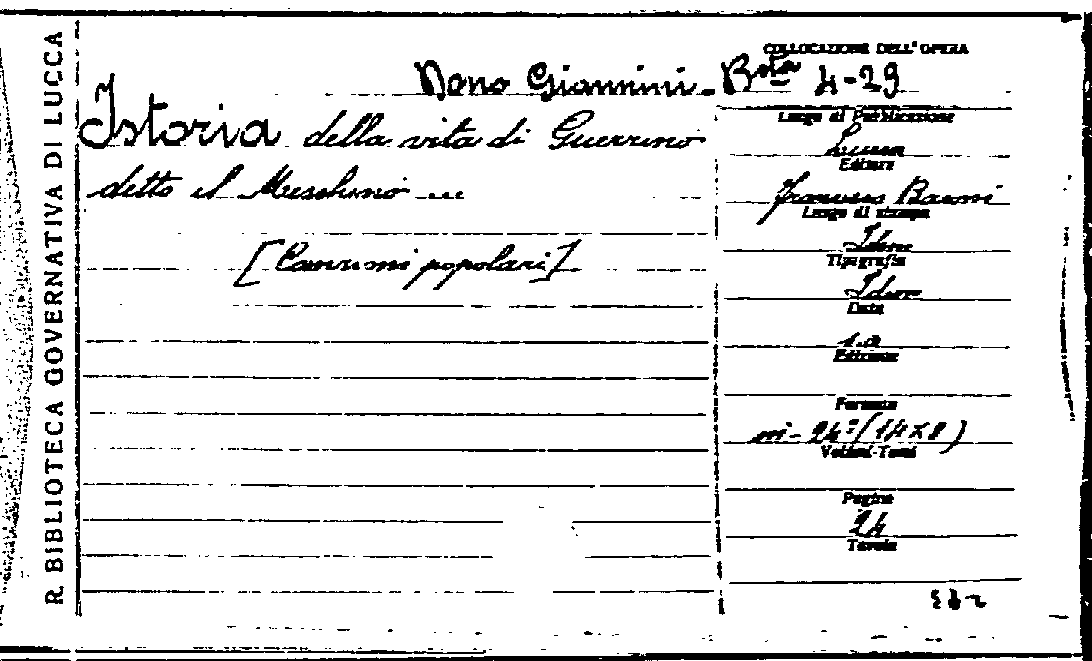 R. BIBLIOTECA GOVERNATIVA DI LUCCA
COLLOCAZIONE DELL'OPERA
Dono Giannini - Bsta 4-29
Istoria della vita di Guerrino
detto il Meschino ...
[Canzoni popolari]
Luogo di Pubblicazione
Lucca
Editore
Francesco Baroni
Luogo di stampa
Idem
Tipografia
Idem
Data
s.a
Edizione
Formato
in-24º (14x8)
Volumi-Tomi
Pagine
24
Tavole